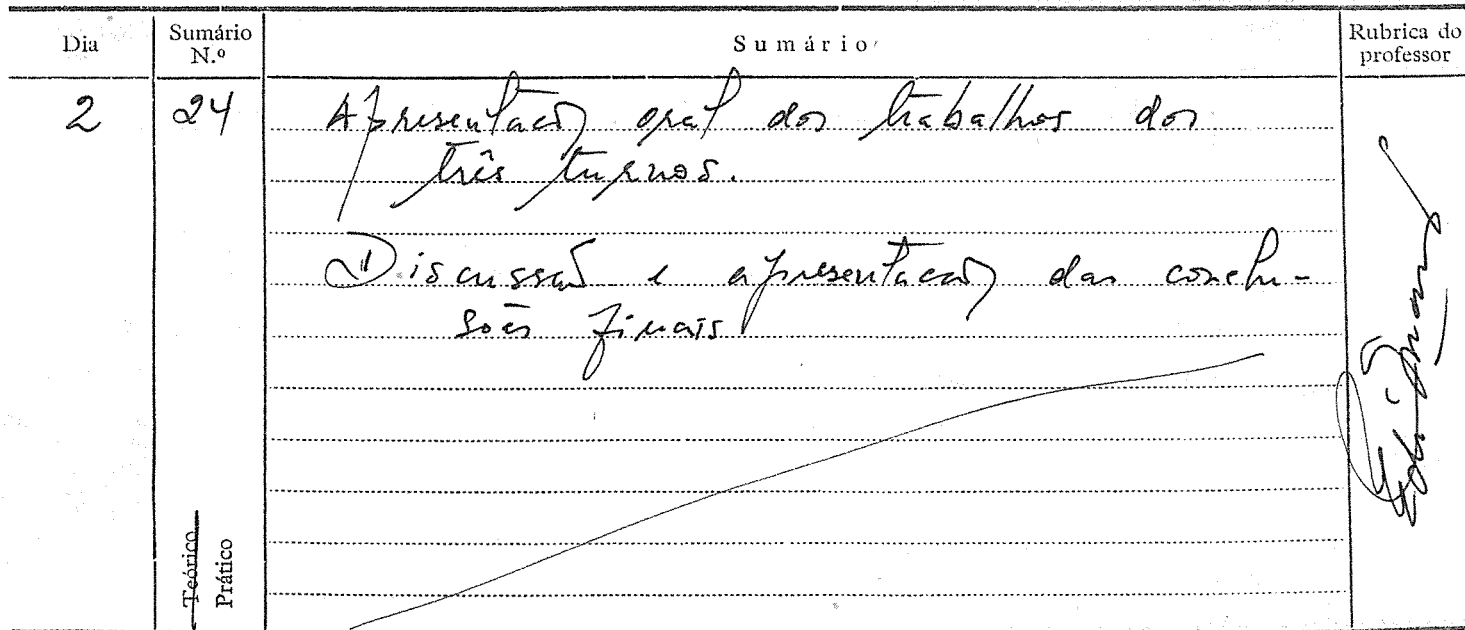 Dia
Sumário
N.º
Sumário
Rubrica do
professor
2
24
Apresentação oral dos trabalhos dos
três turnos.
Discussão e apresentação das conclu-
sões finais
Teórico
Prático